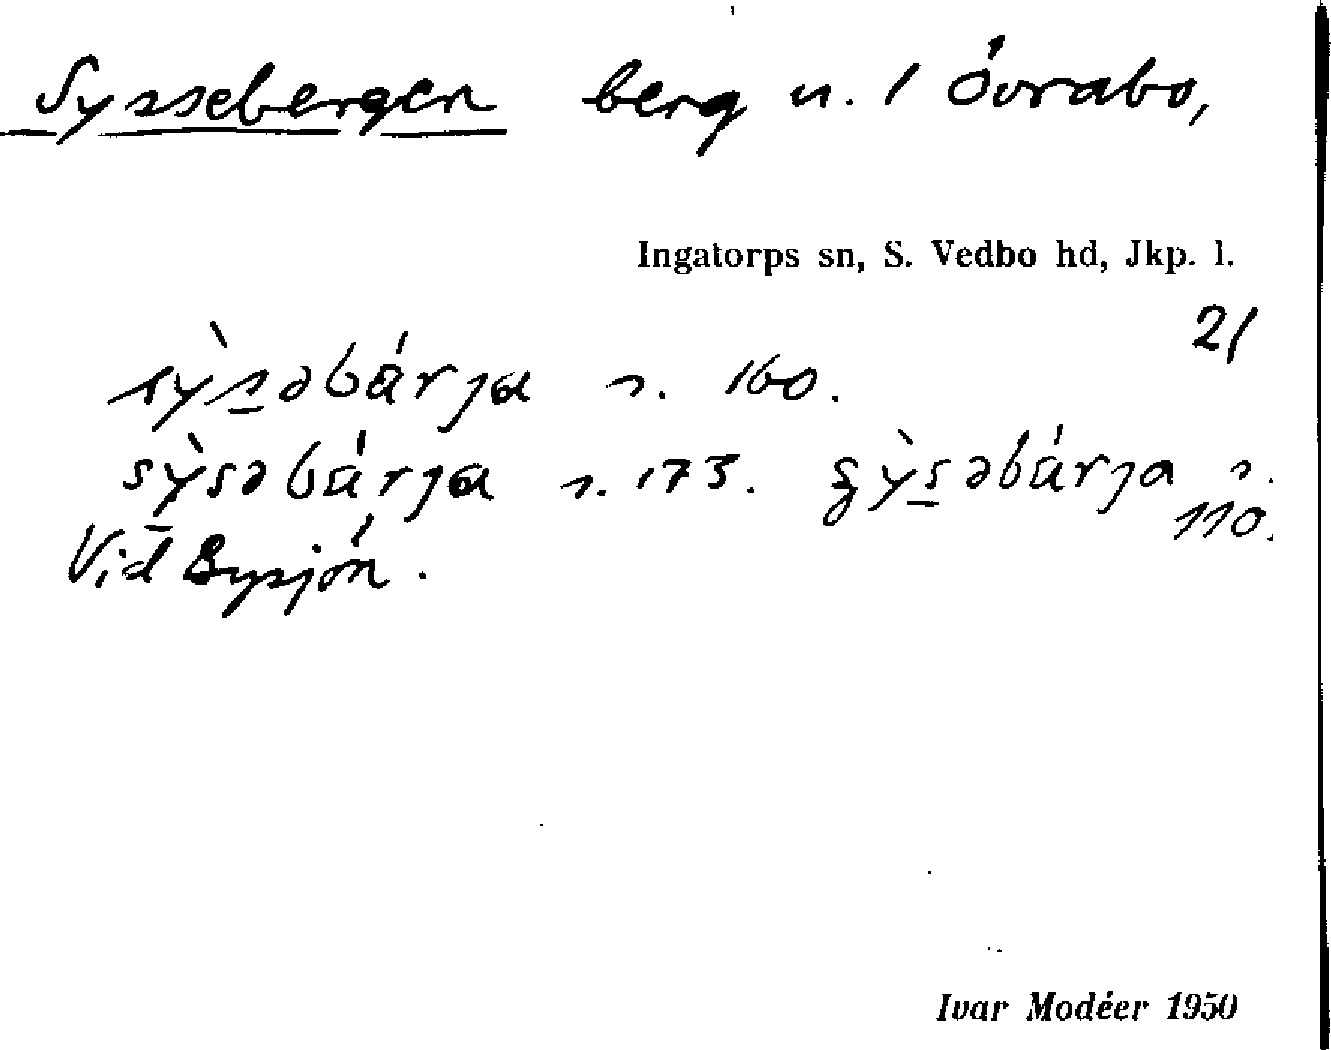 Syssebergen berg u. / Övrabo,
Ingatorps sn, S. Vedbo hd, Jkp. l.
21
sỳs̲əbárja s. 160.
sỳsəbárja s. 173. sỳs̲əbárja s.
110.
Vid Sysjön.
Ivar Modéer 1950